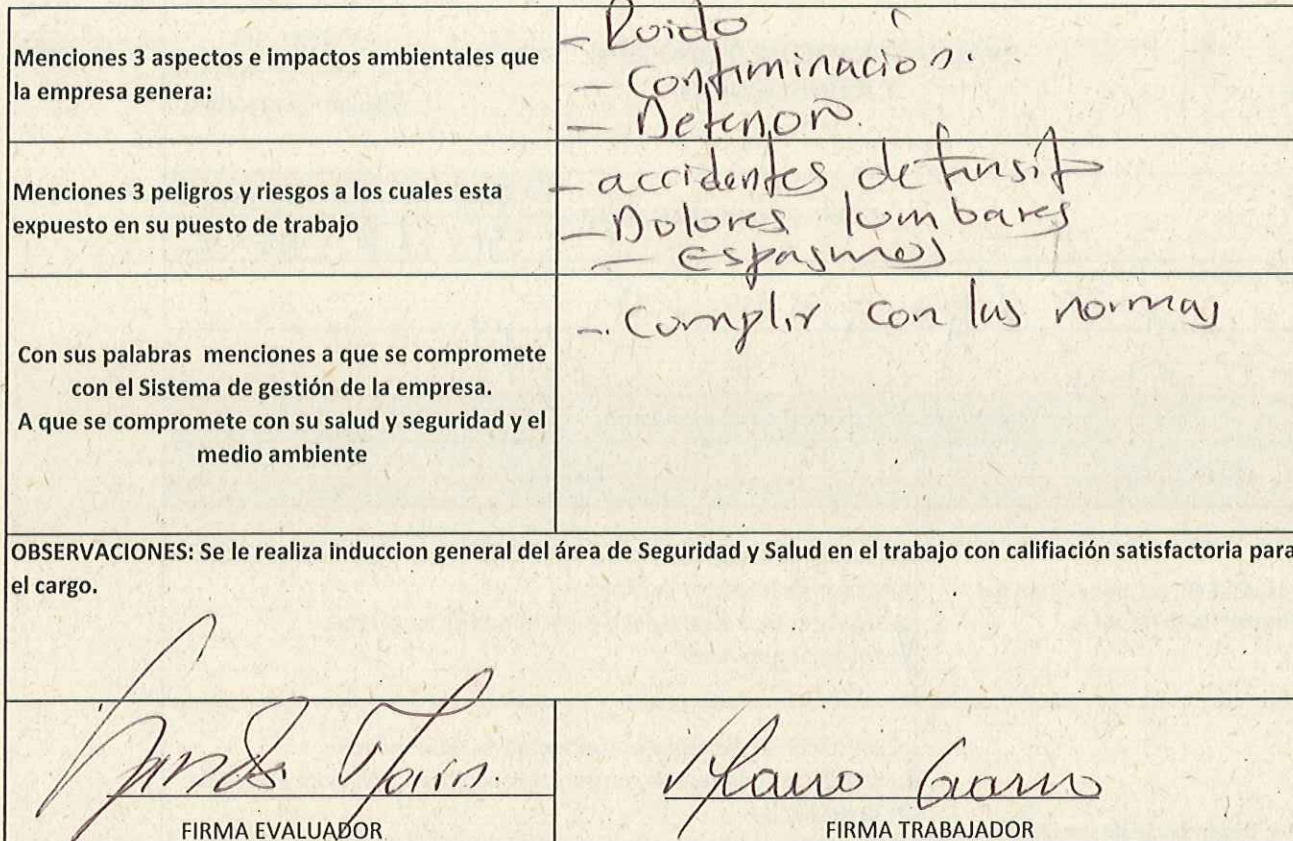 Menciones 3 aspectos e impactos ambientales que
la empresa genera:
- Ruido
- Contiminación.
- Deterioro.
Menciones 3 peligros y riesgos a los cuales esta
expuesto en su puesto de trabajo
- accidentes de transito
- Dolores lumbares
- Espasmos
Con sus palabras menciones a que se compromete
con el Sistema de gestión de la empresa.
A que se compromete con su salud y seguridad y el
medio ambiente
- Cumplir con las normas
OBSERVACIONES: Se le realiza induccion general del área de Seguridad y Salud en el trabajo con califiación satisfactoria para
el cargo.
FIRMA EVALUADOR
FIRMA TRABAJADOR